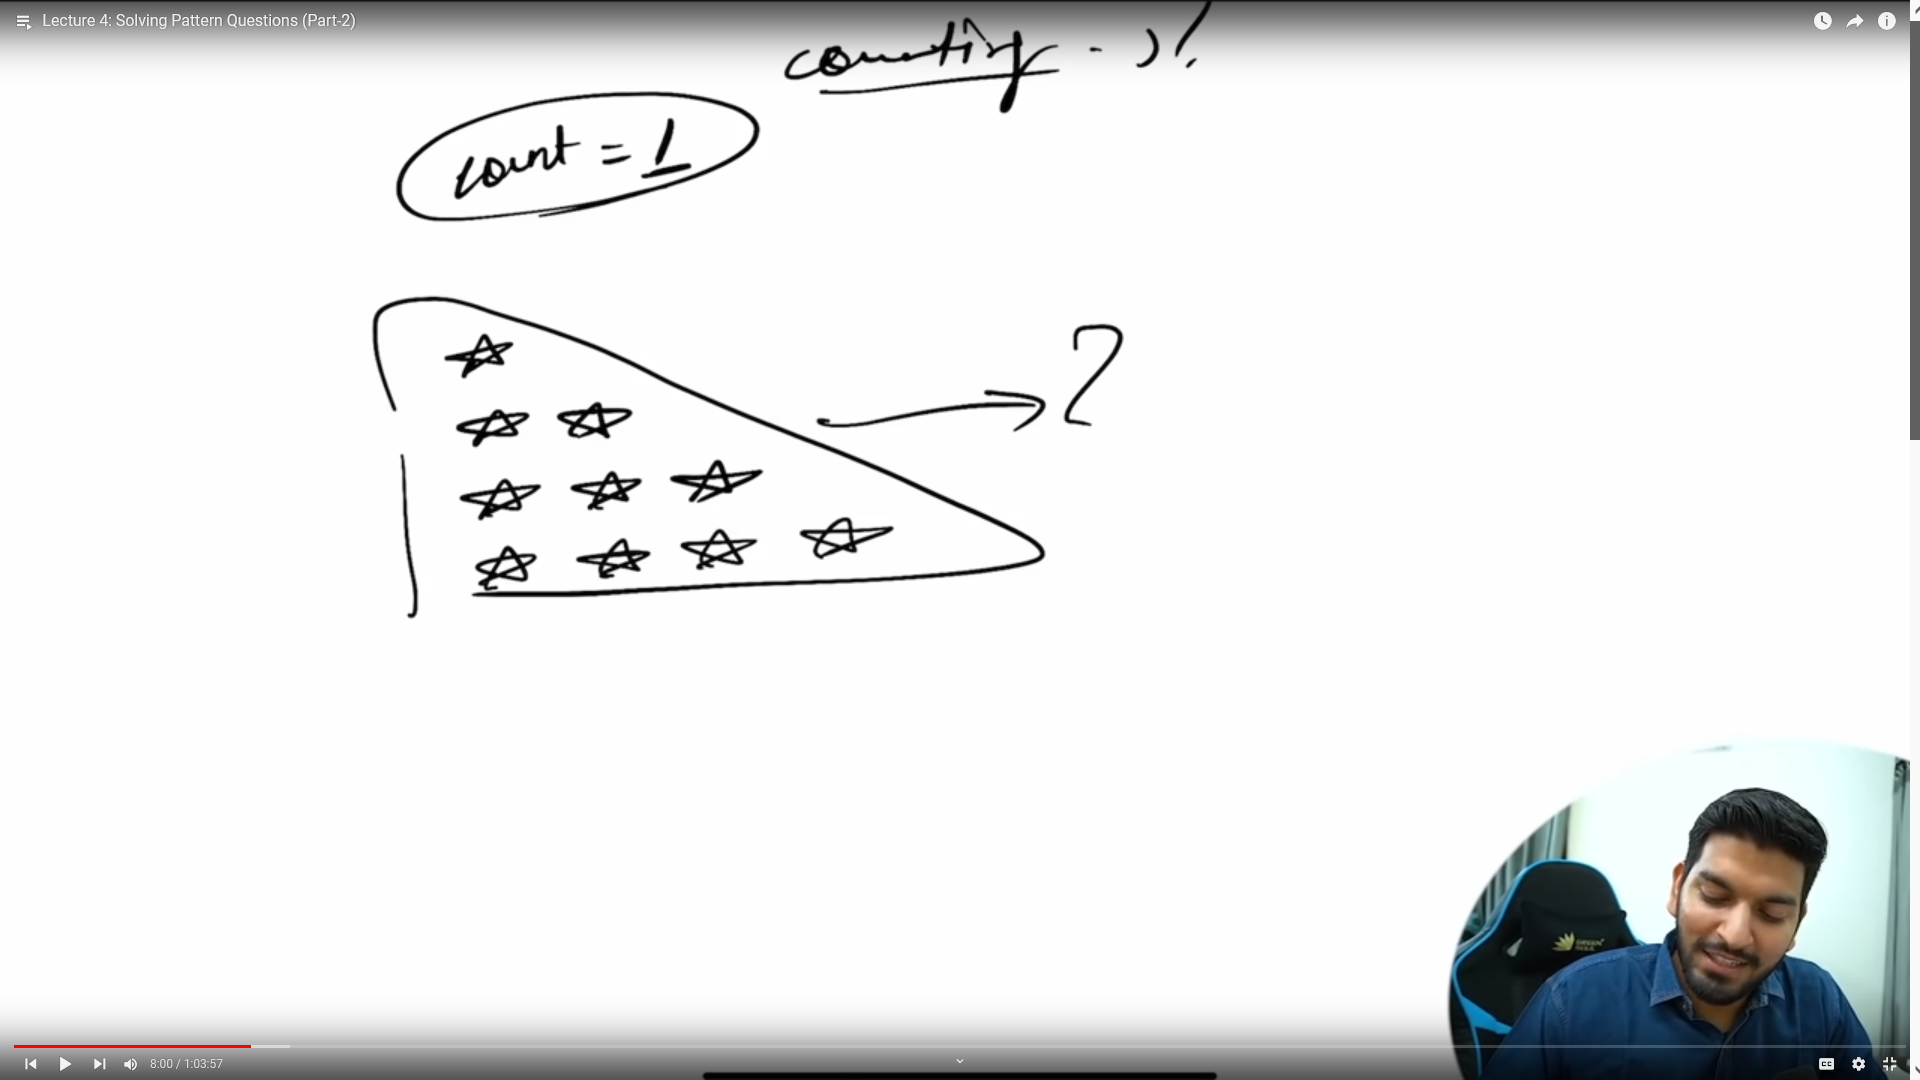 Lecture 4: Solving Pattern Questions (Part-2)
counting
count = 1
8:00 / 1:03:57
CC